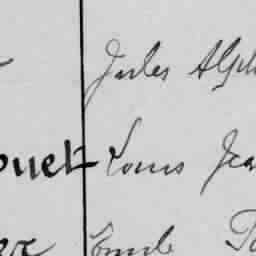 Jules Alph
ouet Louis Jea
er Emile